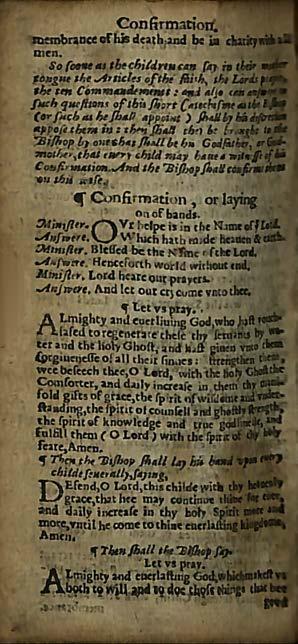 Confirmation.
membrance of his death and be in charity with all
men.
So soone as the children can say in their mother
tongue the Articles of the faith, the Lords prayer,
the ten Commandements: and also can answere to
such questions of this short Catechisme as the Bishop
(or such as he shall appoint) shall by his discretion
appose them in: then shall they be brought to the
Bishop by one that shall be his Godfather, or God-
mother, that every child may haue a witnesse of his
Confirmation. And the Bishop shall confirme them
on this wise.
¶ Confirmation, or laying
on of hands.
Minister. OVr helpe is in the Name of the Lord.
Answere. Which hath made heauen & earth.
Minister. Blessed be the Name of the Lord.
Answere. Henceforth world without end.
Minister. Lord heare our prayers.
Answere. And let our cry come vnto thee.
¶ Let vs pray.
ALmighty and euerliuing God, who hast vouch-
safed to regenerate these thy seruants by wa-
ter and the holy Ghost, and hast giuen vnto them
forgiuenesse of all their sinnes: strengthen them,
wee beseech thee, O Lord, with the holy Ghost the
Comforter, and daily increase in them thy mani-
fold gifts of grace, the spirit of wisdome and vnder-
standing, the spirit of counsell and ghostly strength,
the spirit of knowledge and true godlinesse, and
fulfill them (O Lord) with the spirit of thy holy
feare, Amen.
¶ Then the Bishop shall lay his hand vpon euery
childe seuerally, saying,
DEfend, O Lord, this childe with thy heauenly
grace, that hee may continue thine for euer,
and daily increase in thy holy Spirit more and
more, vntil he come to thine euerlasting kingdome,
Amen.
¶ Then shall the Bishop say.
Let vs pray.
ALmighty and euerlasting God, which makest vs
both to will and to doe those things that bee
good